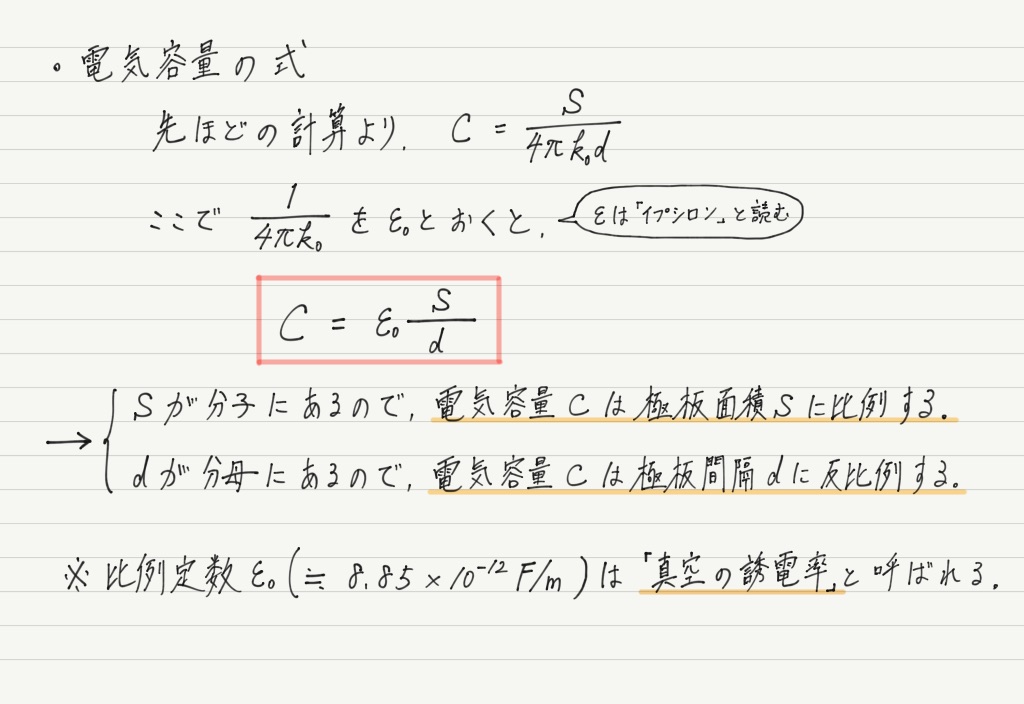 ・電気容量の式
先ほどの計算より, C = S/4πk₀d
ここで 1/4πk₀ を ε₀とおくと, εは「イプシロン」と読む
C = ε₀ S/d
→ Sが分子にあるので, 電気容量Cは極板面積Sに比例する.
dが分母にあるので, 電気容量Cは極板間隔dに反比例する.
※ 比例定数 ε₀ (≒ 8.85 × 10⁻¹² F/m) は「真空の誘電率」と呼ばれる.